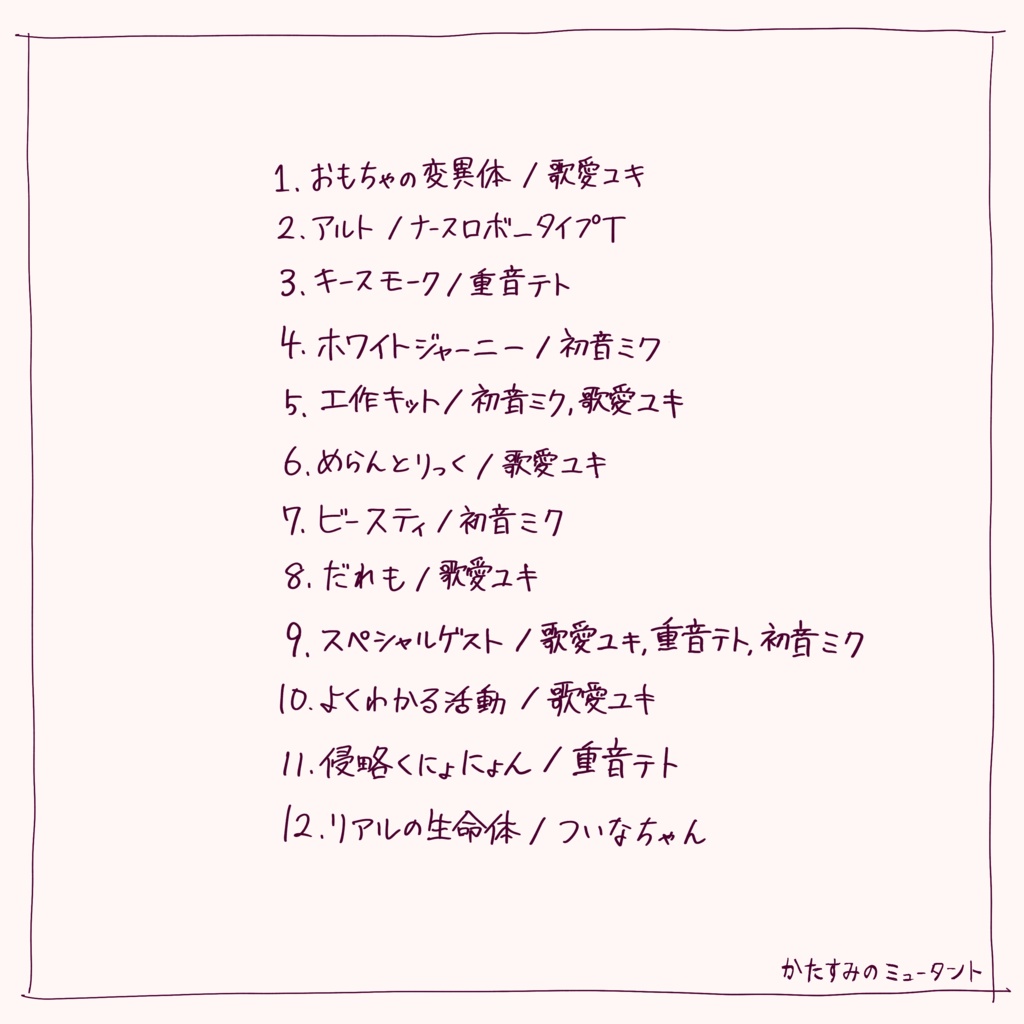 1. おもちゃの変異体 / 歌愛ユキ
2. アルト / ナースロボ_タイプT
3. キースモーク / 重音テト
4. ホワイトジャーニー / 初音ミク
5. 工作キット / 初音ミク, 歌愛ユキ
6. めらんとりっく / 歌愛ユキ
7. ビースティ / 初音ミク
8. だれも / 歌愛ユキ
9. スペシャルゲスト / 歌愛ユキ, 重音テト, 初音ミク
10. よくわかる活動 / 歌愛ユキ
11. 侵略くにょにょん / 重音テト
12. リアルの生命体 / ついなちゃん
かたすみのミュータント